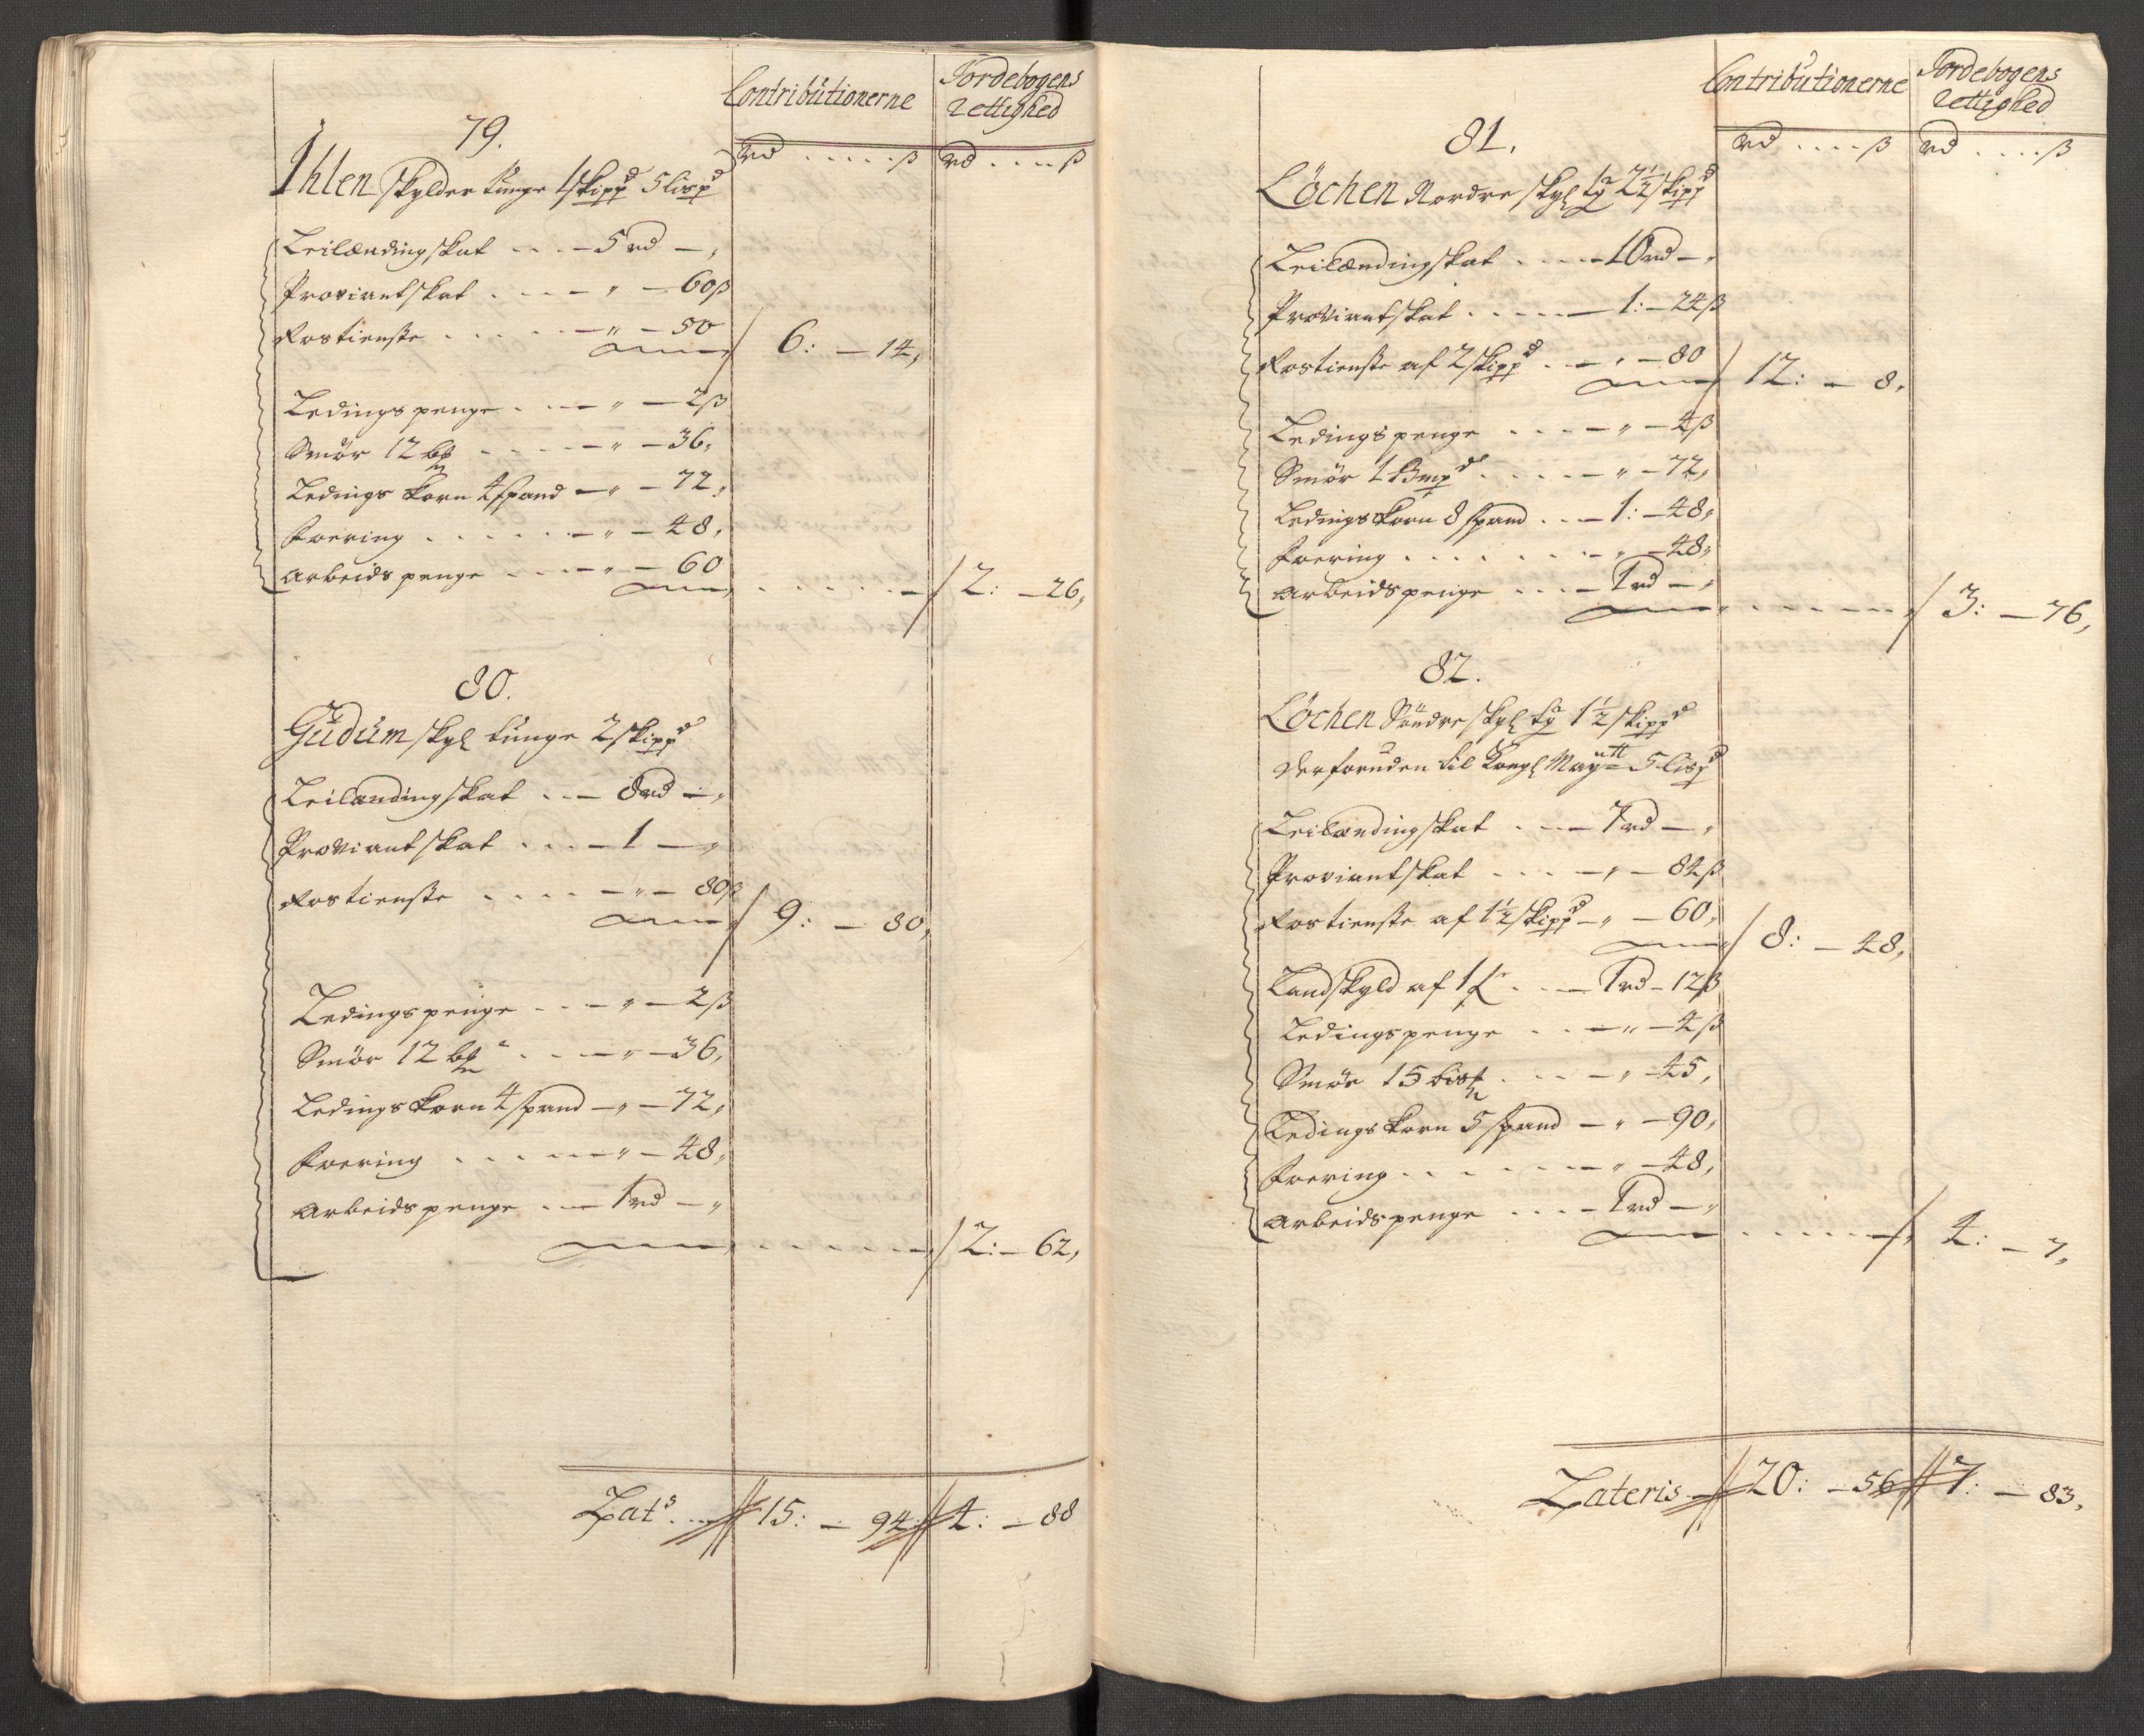 Contributionerne
Jordebogens
Rettighed
rd ..... ß rd .... ß
79.
Ihlen skylder tunge 1 skippd 5 lispd
Leilændingskat ... 5 rd — „
Proviantskat .... „ — 60 ß
Rostienste ..... „ — 50
6: — 14„
Ledingspenge ... „ — 2 ß
Smör 12 bß .... „ — 36„
Ledings korn 4 spand — „ — 72„
Foering ...... „ — 48„
Arbeidspenge .... „ — 60
2: — 26„
80.
Gudum skyl tunge 2 skippd
Leilændingskat ... 8 rd — „
Proviantskat ... 1 — „
Rostienste .... „ — 80 ß
9: — 80„
Ledingspenge ... „ — 2 ß
Smör 12 bß ... „ — 36„
Ledings korn 4 spand — „ — 72„
Foering ..... „ — 48„
Arbeidspenge ... 1 rd — „
2: — 62„
Lats. ... 15: — 94 4: — 88
Contributionerne
Jordebogens
Rettighed
rd .... ß rd .... ß
81.
Löchen Nordre skyl tga 2½ skippd
Leilændingskat .... 10 rd — „
Proviantskat .... 1: — 24 ß
Rostienste af 2 skippd .. „ — 80
12: — 8„
Ledingspenge .... „ — 4 ß
Smör 1 Bmpd .... „ — 72„
Ledings korn 8 spand ... 1: — 48„
Foering ...... „ — 48„
Arbeidspenge .... 1 rd — „
3: — 76„
82.
Löchen Söndre skyl tga 1½ skippd
Derforuden til Kongl Maytt 5 lispd
Leilændingskat .... 7 rd — „
Proviantskat .... „ — 84 ß
Rostienste af 1½ skippd — „ — 60„
8: — 48„
Landskyld af 1 ... 1 rd — 12 ß
Ledingspenge ... „ — 4 ß
Smör 15 .... „ — 45„
Ledings korn 5 spand — „ — 90„
Foering ...... „ — 48„
Arbeidspenge .... 1 rd — „
4: — 7„
Lateris 20: — 56 7: — 83„